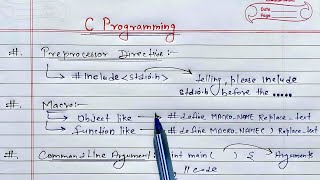 Date
Page
C Programming
#. Preprocessor Directive:-
#include<stdio.h> telling, please include
stdio.h before the .....
#. Macro:-
object like → # define MACRO_NAME Replace_text
function like → # define MACRO_NAME( ) Replace_text
#. Command Line Argument: int main( ) { Arguments
// code